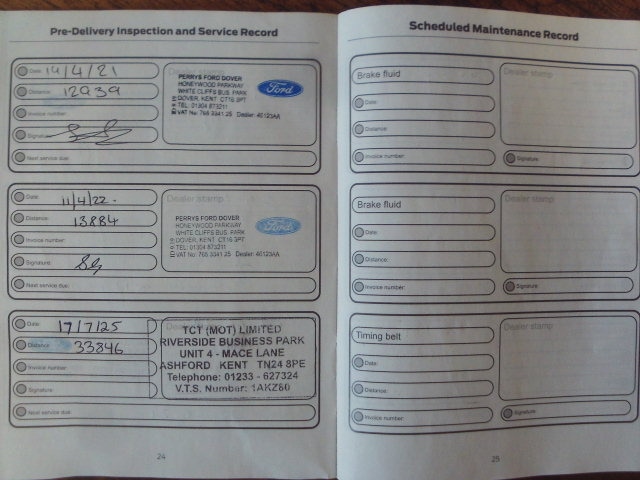 Pre-Delivery Inspection and Service Record
Date: 14/4/21
Distance: 12939
Invoice number:
Signature:
Next service due:
PERRYS FORD DOVER
HONEYWOOD PARKWAY
WHITE CLIFFS BUS. PARK
DOVER, KENT CT16 3PT
TEL: 01304 873211
VAT No: 765 3341 25 Dealer: 40123AA
Ford
Date: 11/4/22.
Distance: 13884
Invoice number:
Signature:
Next service due:
Dealer stamp
PERRYS FORD DOVER
HONEYWOOD PARKWAY
WHITE CLIFFS BUS. PARK
DOVER, KENT CT16 3PT
TEL: 01304 873211
VAT No: 765 3341 25 Dealer: 40123AA
Ford
Date: 17/7/25
Distance 33846
Invoice number:
Signature
Next service due:
Dealer stamp
TCT (MOT) LIMITED
RIVERSIDE BUSINESS PARK
UNIT 4 - MACE LANE
ASHFORD KENT TN24 8PE
Telephone: 01233 - 627324
V.T.S. Number:
24
Scheduled Maintenance Record
Brake fluid
Date:
Distance:
Invoice number:
Dealer stamp
Signature
Brake fluid
Date:
Distance:
Invoice number:
Dealer stamp
Signature
Timing belt
Date:
Distance:
Invoice number:
Dealer stamp
Signature
25